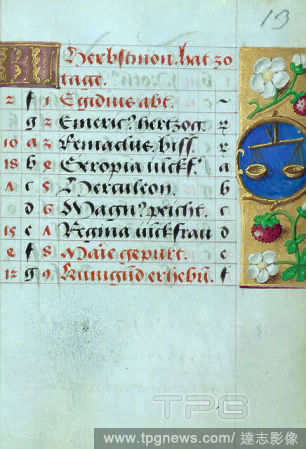 13
Herbstmon. hat zo
tage.
2 f 1 Egidius abt.
g 2 Emeric⁹ hertzog
10 a 3 Remaclus biss.
18 b 4 Seropia iückf.
c 5 Herculeon.
d 6 Magn⁹ peicht.
15 e 7 Regina iückfrau
f 8 Marie gepurt.
12 g 9 Künigūd erhebū.
TPG
www.tpgnews.com/ 達志影像